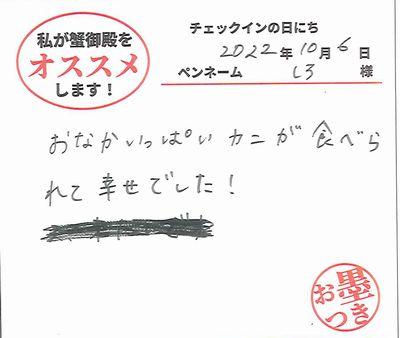 私が蟹御殿を
オススメ
します！
チェックインの日にち
2022年10月6日
ペンネーム しろ 様
おなかいっぱいカニが食べら
れて幸せでした！
お墨つき